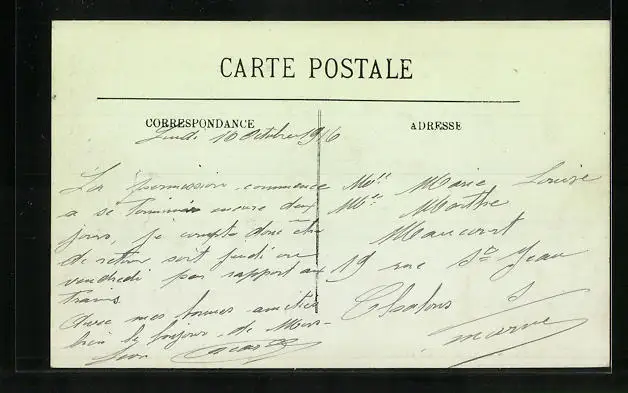 CARTE POSTALE
CORRESPONDANCE
ADRESSE
Lundi 10 Octobre 1916
La permission commence
a se terminer encore deux
jours, je compte donc être
de retour soit jeudi ou
vendredi par rapport aux
trains
Avec mes bonnes amitiés
bien le bonjour de
Mlle Marie Louise
Mlle Marthe
Maucourt
19 rue St Jean
Chalons s/
marne